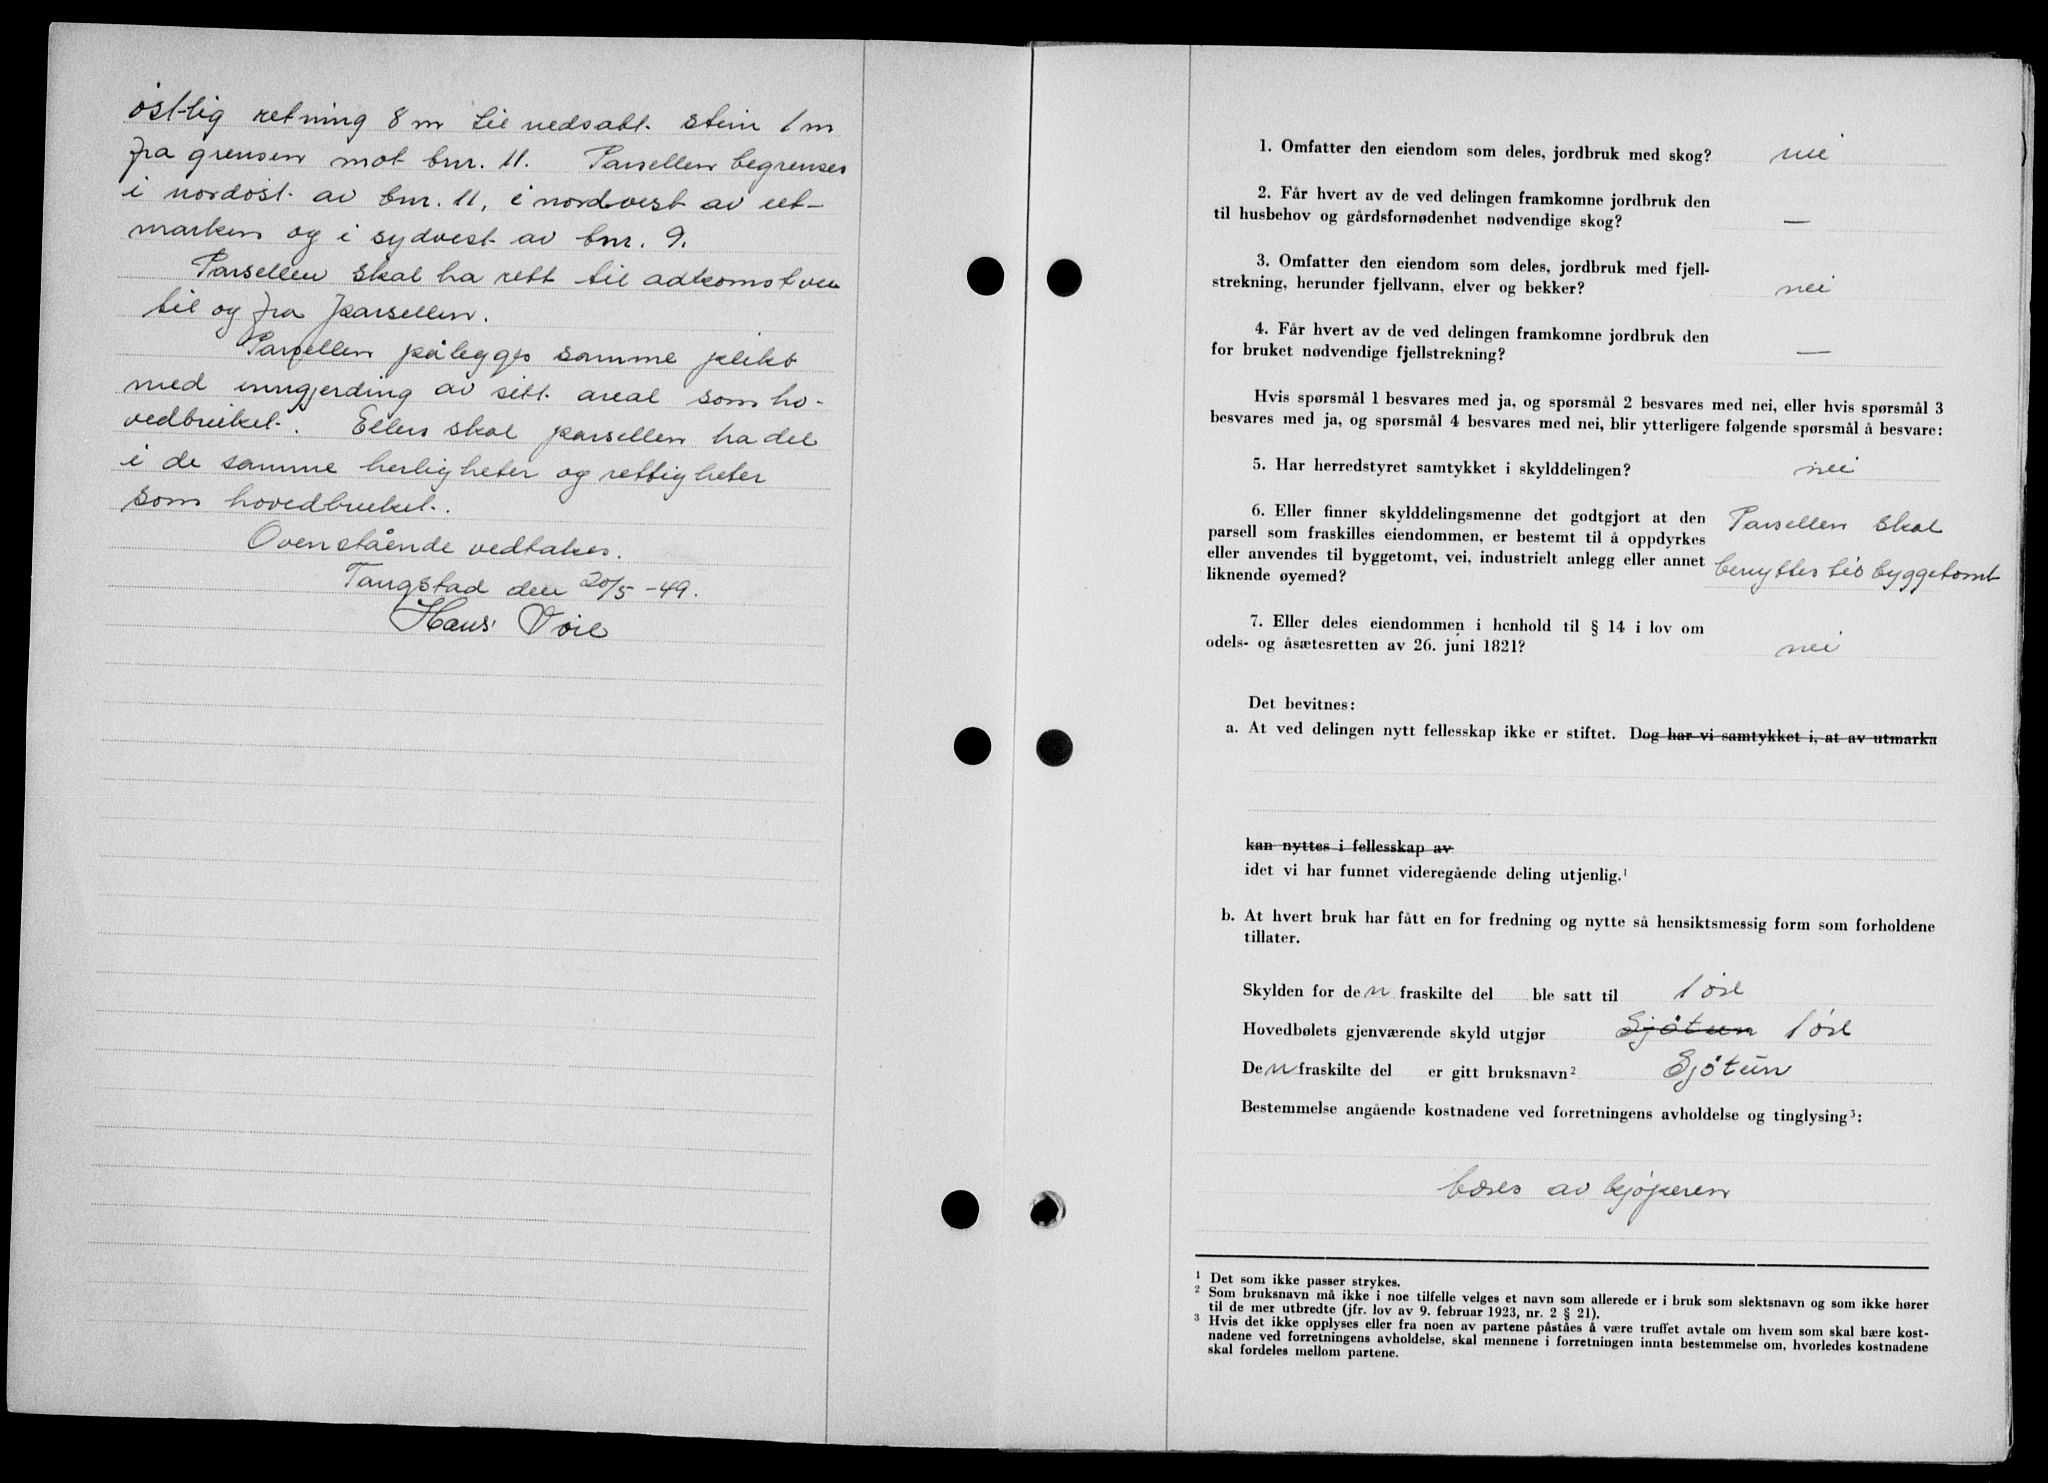 östlig retning 8 m til nedsatt stein 1 m
fra grensen mot bnr. 11. Parsellen begrenses
i nordöst av bnr. 11, i nordvest av ut-
marken og i sydvest av bnr. 9.
Parsellen skal ha rett til adkomst vei
til og fra parsellen.
Parsellen pålegges samme plikt
med inngjerding av sitt areal som ho-
vedbruket. Ellers skal parsellen ha del
i de samme herligheter og rettigheter
som hovedbruket.
Ovenstående vedtakes.
Tangstad den 20/5 -49.
Hans
1. Omfatter den eiendom som deles, jordbruk med skog? nei
2. Får hvert av de ved delingen framkomne jordbruk den
til husbehov og gårdsfornødenhet nødvendige skog? —
3. Omfatter den eiendom som deles, jordbruk med fjell-
strekning, herunder fjellvann, elver og bekker? nei
4. Får hvert av de ved delingen framkomne jordbruk den
for bruket nødvendige fjellstrekning? —
Hvis spørsmål 1 besvares med ja, og spørsmål 2 besvares med nei, eller hvis spørsmål 3
besvares med ja, og spørsmål 4 besvares med nei, blir ytterligere følgende spørsmål å besvare:
5. Har herredstyret samtykket i skylddelingen? nei
6. Eller finner skylddelingsmenne det godtgjort at den Parsellen skal
parsell som fraskilles eiendommen, er bestemt til å oppdyrkes
eller anvendes til byggetomt, vei, industrielt anlegg eller annet benyttes til byggetomt
liknende øyemed?
7. Eller deles eiendommen i henhold til § 14 i lov om
odels- og åsætesretten av 26. juni 1821? nei
Det bevitnes:
a. At ved delingen nytt fellesskap ikke er stiftet. Dog har vi samtykket i, at av utmarka
kan nyttes i fellesskap av
idet vi har funnet videregående deling utjenlig.¹
b. At hvert bruk har fått en for fredning og nytte så hensiktsmessig form som forholdene
tillater.
Skylden for den fraskilte del ble satt til 1 øre
Hovedbølets gjenværende skyld utgjør Sjötun 1 øre
Den fraskilte del er gitt bruksnavn² Sjötun
Bestemmelse angående kostnadene ved forretningens avholdelse og tinglysing³:
bæres av kjøperen
¹ Det som ikke passer strykes.
² Som bruksnavn må ikke i noe tilfelle velges et navn som allerede er i bruk som slektsnavn og som ikke hører
til de mer utbredte (jfr. lov av 9. februar 1923, nr. 2 § 21).
³ Hvis det ikke opplyses eller fra noen av partene påståes å være truffet avtale om hvem som skal bære kost-
nadene ved forretningens avholdelse, skal mennene i forretningen innta bestemmelse om, hvorledes kostnadene
skal fordeles mellom partene.